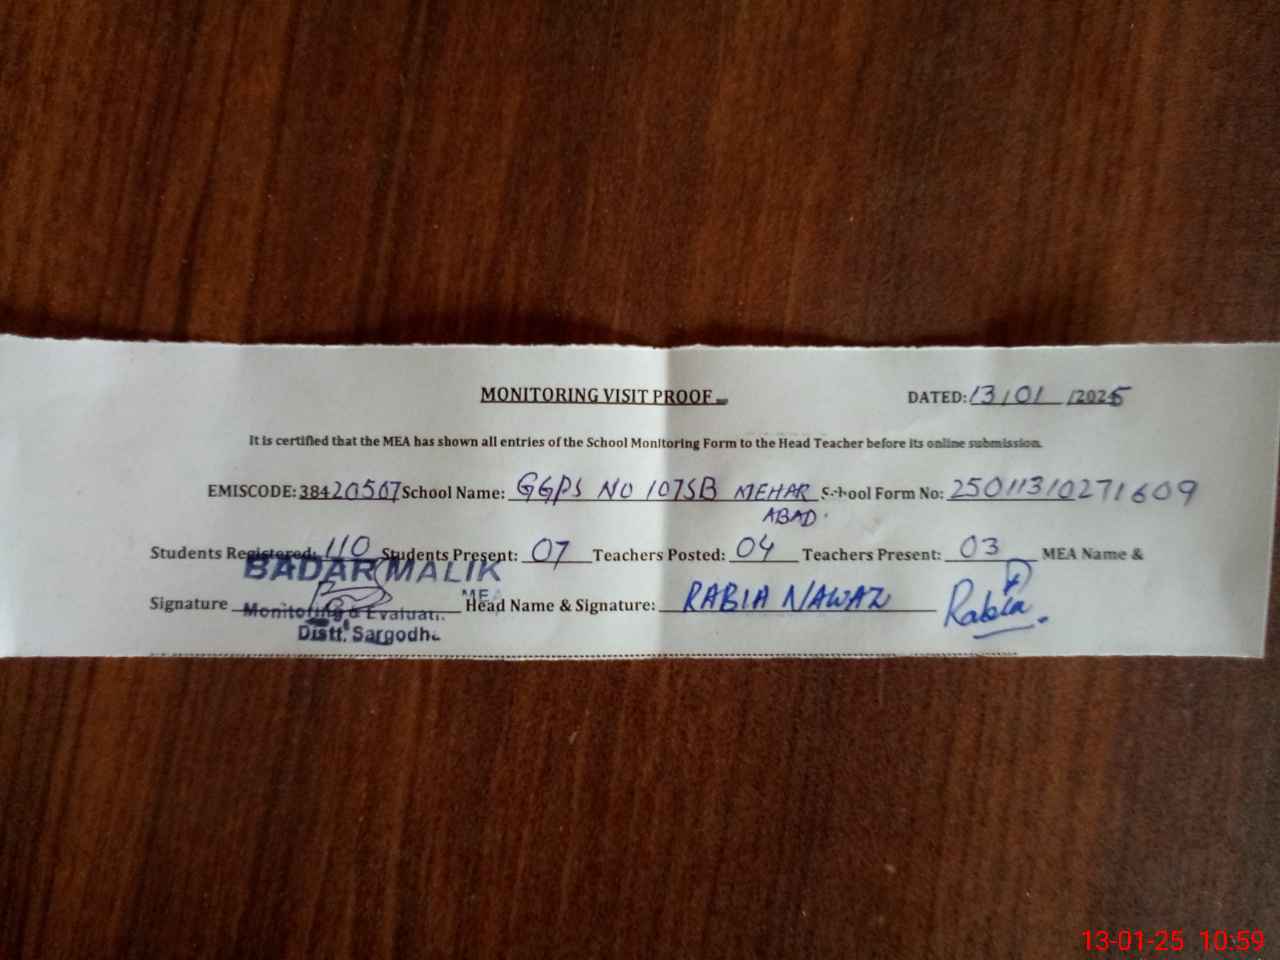 MONITORING VISIT PROOF
DATED: 13/01/2025
It is certified that the MEA has shown all entries of the School Monitoring Form to the Head Teacher before its online submission.
EMISCODE: 38420507 School Name: GGPS NO 107SB MEHAR ABAD. School Form No: 25011310271609
Students Registered: 110 Students Present: 07 Teachers Posted: 04 Teachers Present: 03 MEA Name &
BADAR MALIK
MEA
Signature Head Name & Signature: RABIA NAWAZ Rabia.
Monitoring & Evaluati
Distt. Sargodha
13-01-25 10:59